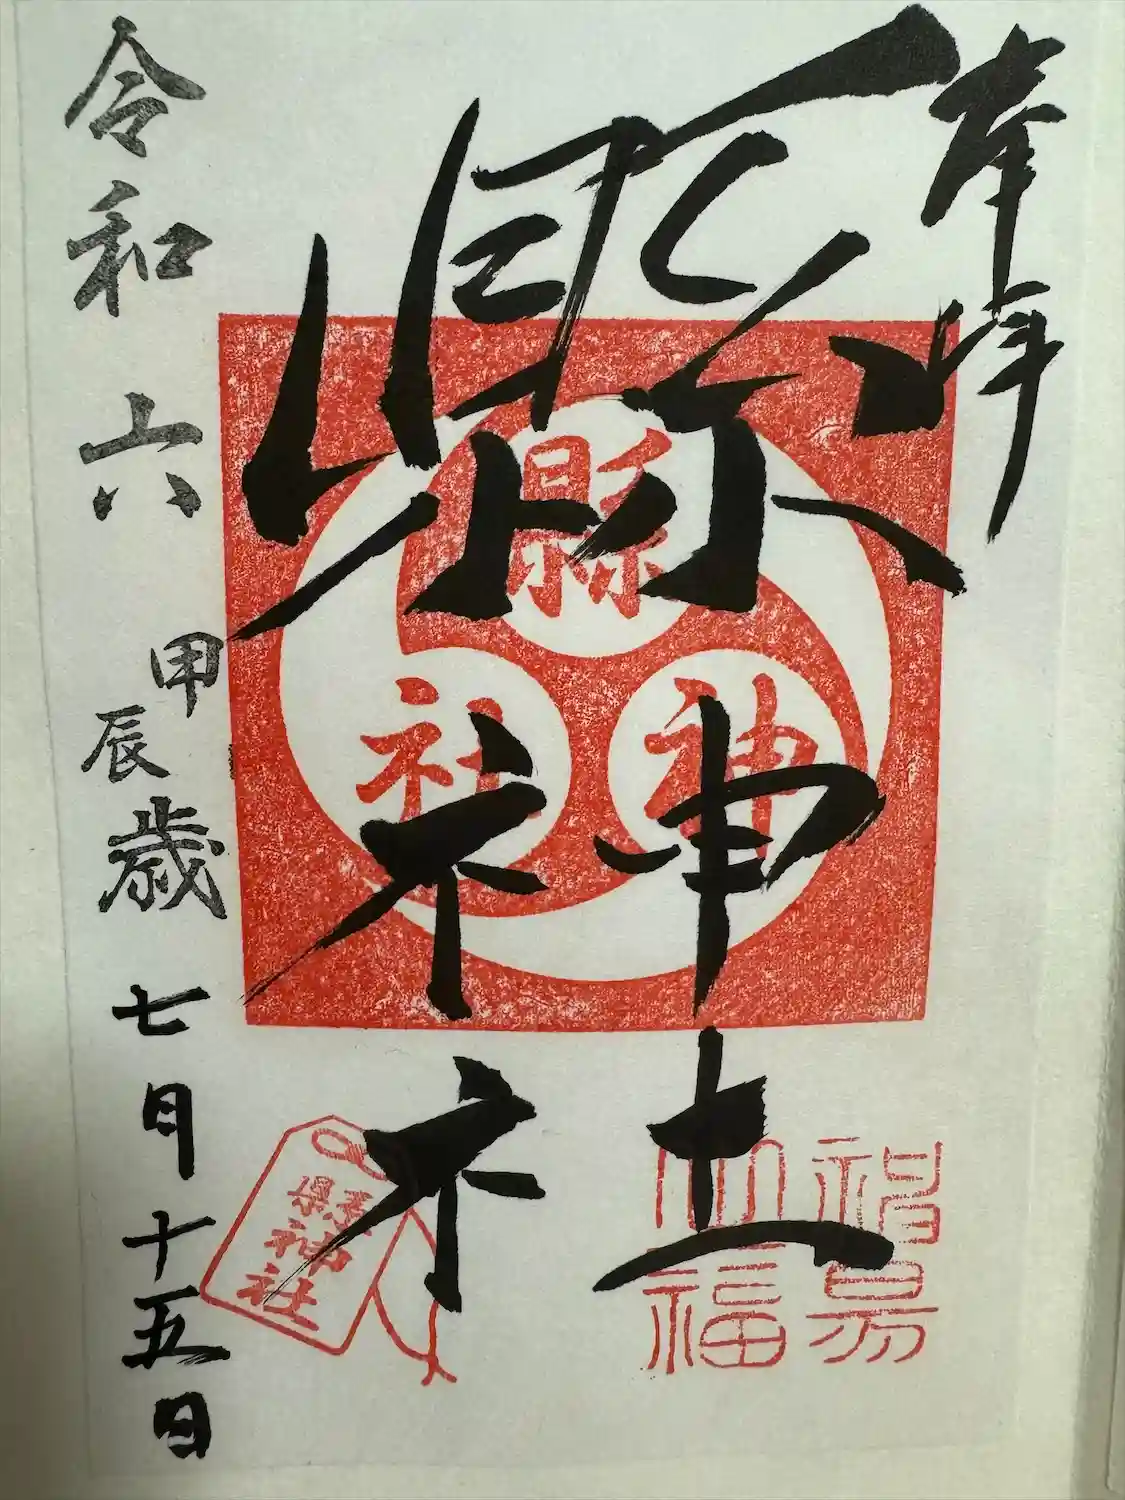 奉拝
縣神社
縣神社
縣神社
令和六甲辰歳七月十五日